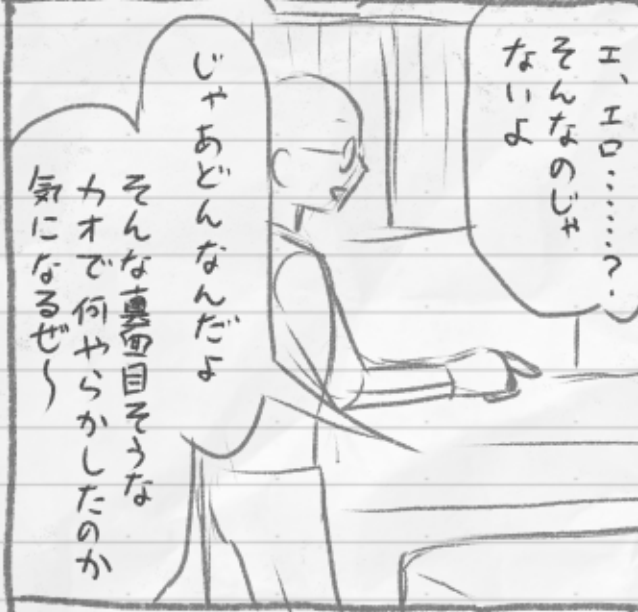 エ、エロ………？
そんなのじゃ
ないよ
じゃあどんなんだよ
そんな真面目そうな
カオで何やらかしたのか
気になるぜ〜